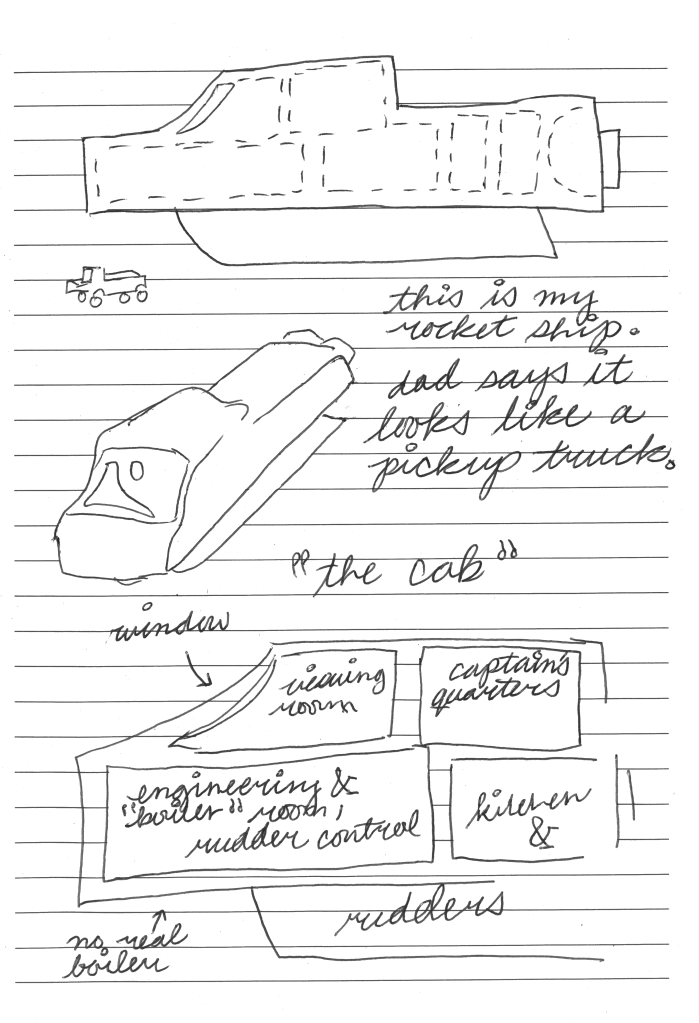 this is my
rocket ship.
dad says it
looks like a
pickup truck.
"the cab"
window
viewing
room
captain's
quarters
engineering &
"boiler" room,
rudder control
kitchen
&
rudders
no real
boiler